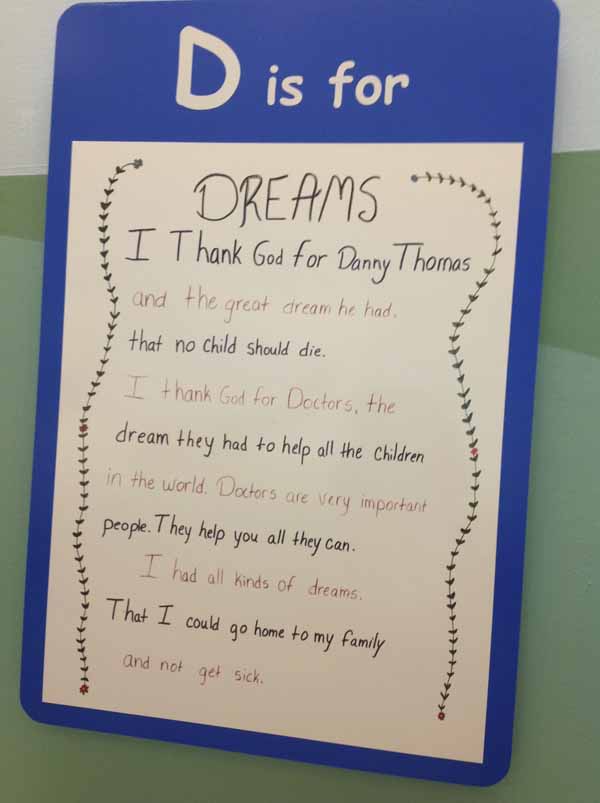 D is for
DREAMS
I Thank God for Danny Thomas
and the great dream he had.
that no child should die.
I thank God for Doctors, the
dream they had to help all the children
in the world. Doctors are very important
people. They help you all they can.
I had all kinds of dreams.
That I could go home to my family
and not get sick.